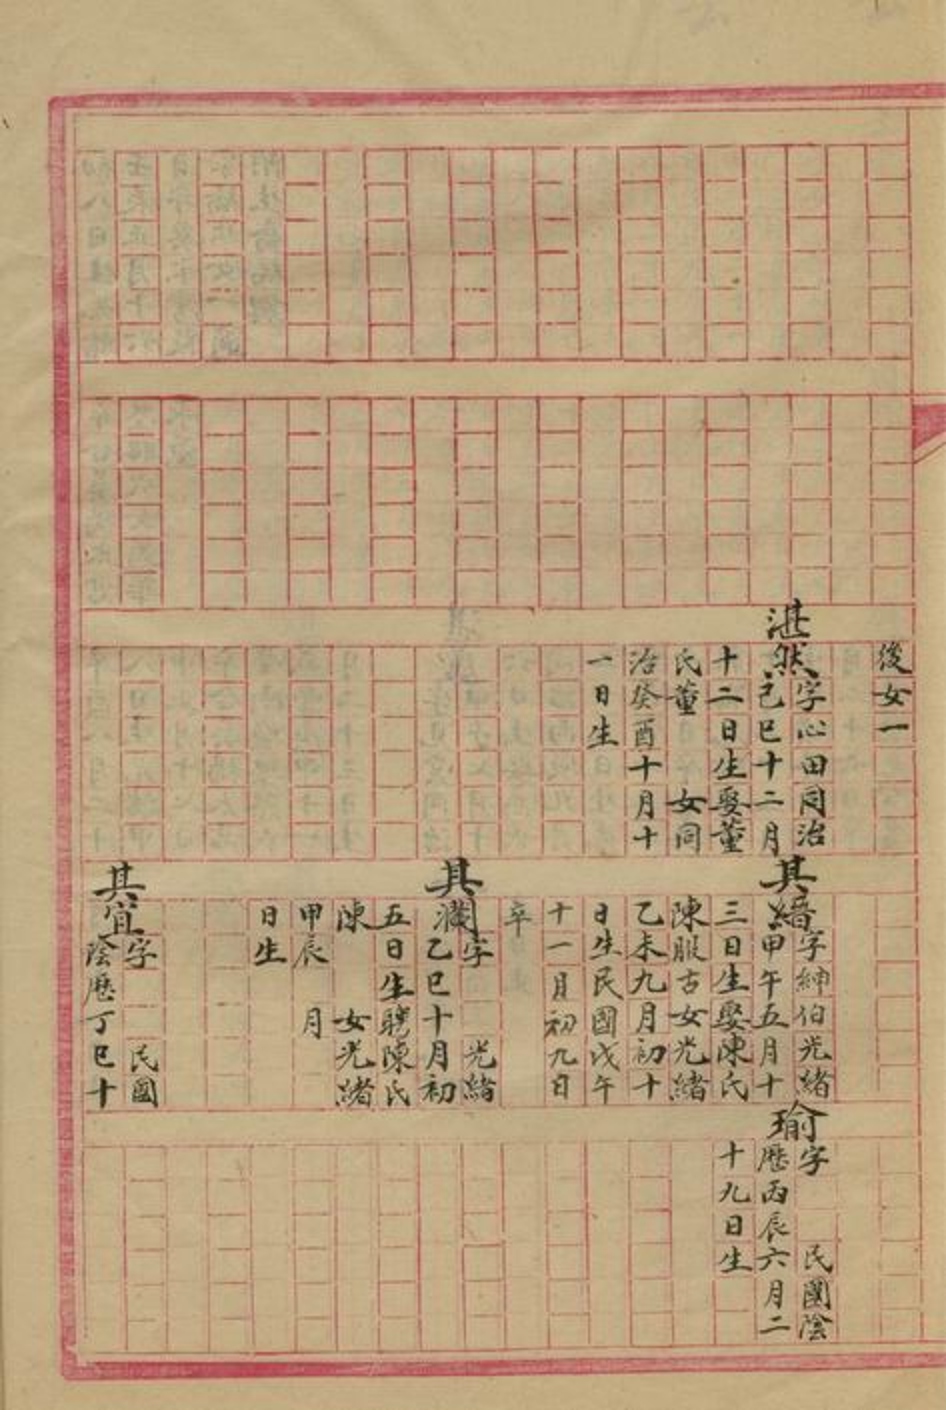 後女一
湛然
字心田同治
己巳十二月
十二日生娶董
氏董　女同
治癸酉十月十
一日生
其縉
字紳伯光緒
甲午五月十
三日生娶陳氏
陳服古女光緒
乙未九月初十
日生民國戊午
十一月初九日
卒
其
字　光緒
乙巳十月初
五日生聘陳氏
陳　女光緒
甲辰　月
日生
其宜
字　民國
陰歷丁巳十
瑜
字　民國陰
歷丙辰六月二
十九日生